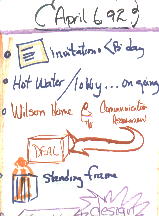 (April 6 92)
Invitations < B day
• Hot Water / lobby... on going
• Wilson Home & Communication
DEAL
• Standing frame
design